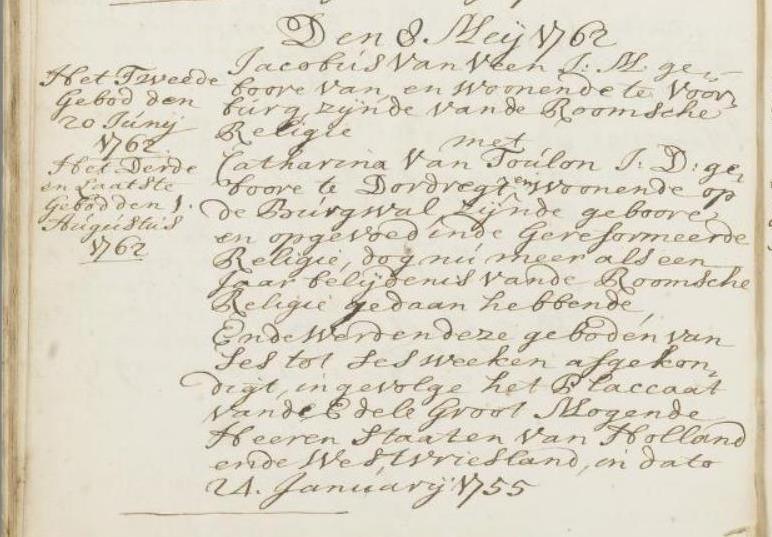 Den 8 Meij 1762
Het Tweede
Gebod den
20 Junij
1762.
Het Derde
en Laatste
Gebod den 1.
Augustus
1762
Jacobus Van Veen J: M: ge-
boore van en woonende te Voor-
burg, zijnde vande Roomsche
Religie
met
Catharina Van Toulon J: D: ge-
boore te Dordregt en woonende op
de Burgwal zijnde geboore
en opgevoed inde Gereformeerde
Religie, dog nu meer als een
Jaar belijdenis vande Roomsche
Religie gedaan hebbende
Ende werden deze geboden van
ses tot ses weeken afgekon-
digt, ingevolge het Placcaat
vande Edele Groot Mogende
Heeren Staaten van Holland
ende West Vriesland, in dato
24. January 1755